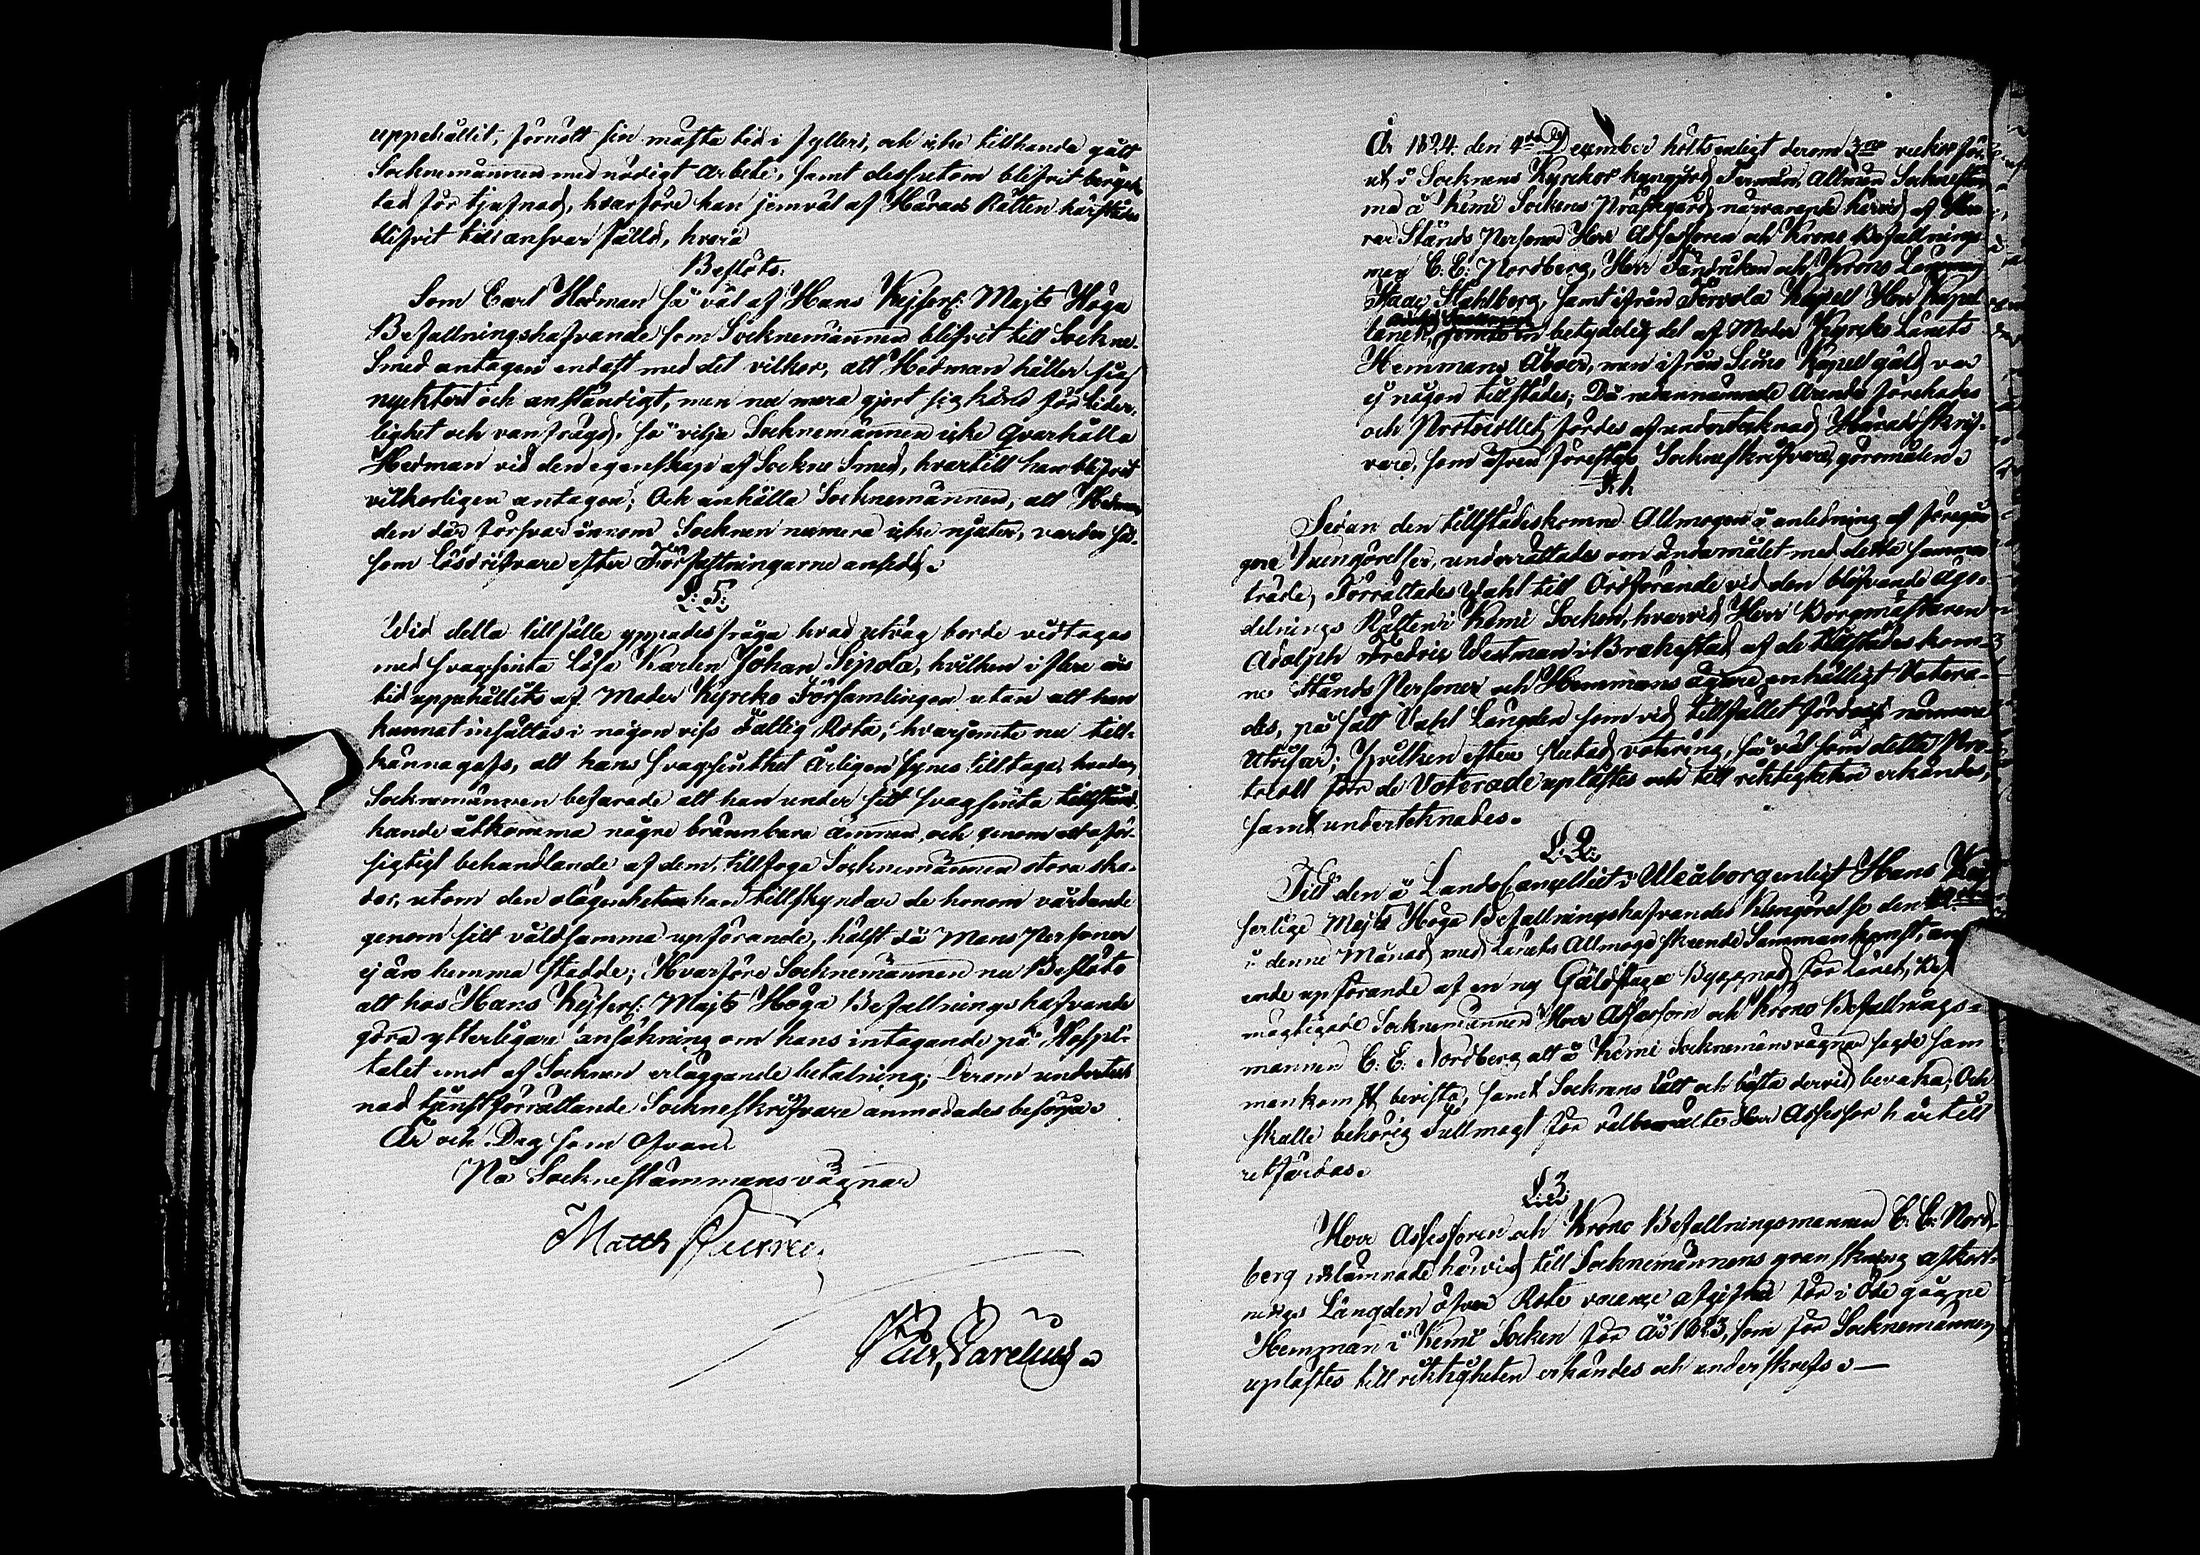 uppehållit, förnött sin mästa tid i fylleri, och icke tillhanda gått
Socknemännen med nödigt arbete, samt dessutom blifvit beryck-
tad för tjufnad, hvarföre han jemväl af Härads Rätten härstädes
blifvit till ansvar fälld, hvarå
Beslöts:
Som Carl Hedman så väl af Hans Kejserl: Majts Höga
Befallningshafvande som Socknemännen blifvit till Sockne
Smed antagen endast med det vilkor, att Hedman håller sig
nycktert och anständigt, men nu mera gjort sig känd för lider-
lighet och vanfrägd, så vilja Socknemännen icke qvarhålla
Hedman vid den egenskap af Sockne Smed, hvartill han blifvit
vilkorligen antagen; Och anhålla Socknemännen, att Hedman
den där försvar inom Socknen numera icke njuter, varder så-
som lösdrifvare efter Författningarne ansedd.
§: 5:
Wid detta tillfälle yppades fråga hvad utväg borde vidtagas
med svagsinta Lösa Karlen Johan Sipola, hvilken i flere års
tid uppehållits af Moder Kyrko Församlingen utan att han
kunnat insättas i någon viss Fattig Rota; hvarjemte nu till-
kännagafs, att hans svagsinthet årligen synes tilltaga, hvadan
Socknemännen befarade att han under sitt svagsinta tillstånd
kunde åtkomma några brännbara ämnen, och genom oför-
sigtigt behandlande af dem, tillfoga Socknemännen stora ska-
dor, utom den olägenheten han tillskyndar de honom vårdande
genom sitt våldsamma upförande, hälst då Mans Personer
ej äro hemma stadde; Hvarföre Socknemännen nu Beslöto
att hos Hans Kejserl: Majts Höga Befallningshafvande
göra ytterligare ansökning om hans intagande på Hospi-
talet emot af Socknen erläggande betalning; Derom underteck-
nad tjenstförrättande Socknskrifvare anmodades besörja.
År och Dag som ofvan.
På Socknestämmans vägnar
Matth
År 1824 den 4de December hölts enligt derom 3ne veckor för-
ut i Socknens Kyrkor kungjord Termin, Allmän Sockneståm
ma å Kemi Sockens Prästgård, närvarande härvid af Her
rar Stånds Personer Herr Assessoren och Krono Befallnings
man C. E: Nordberg, Herr Fändriken och Krono Länsman
Isaac Stahlberg, samt ifrån Tervola Kapell Herr Kapel
lanen, betydelig del af Moder Kyrko Länets
Hemmans Åboer, men ifrån Simo Kapell gäld var
ej någon tillstädes; Då nedannämnde ärende förehades
och Protocollet fördes af undertecknad Häradsskrif-
vare, som äfven förestår Sockneskrifvare göromålen.
§: 1:
Sedan den tillstädeskomne Allmogen i anledning af föregån
gne Kungörelser, underrättades om ändamålet med detta samman
träde, Förrättades Wahl till Ordförande vid den blifvande Ägo-
delnings Rätten i Kemi Socken, hvarvid Herr Borgmästaren
Adolph Fredric Westman i Brahestad af de tillstädes kom-
ne Stånds Personer och Hemmans ägare enhälligt Votera-
des, på sätt Vahl Längden som vid tillfället fördes närmare
utvisar; Hvilken efter slutad votering, så väl som detta Pro-
tocoll för de Voterade uplästes och till riktigheten erkändes,
samt undertecknades.
§: 2:
Till den å LandsCancelliet i Uleåborg enligt Hans Kej
serlige Majts Höga Befallningshafvandes Kungörelse den
i denne Månad med Länets Allmoge skeende Sammankomst, an
ende upförande af en ny Gäldstuga Byggnad för Länet, Be
mögtigade Socknemännen Herr Assessoren och Krono Befallnings-
mannen C. E. Nordberg att å Kemi Socknemäns vägnar sagde sam
mankomst bevista, samt Socknens rätt och bästa dervid bevaka; Och
skulle behörig Fullmagt för välbemälte Herr Assessor härtill
utfärdas.
§: 3.
Herr Assessoren och Krono Befallningsmannen C. E: Nord-
berg inlämnade härvid till Socknemännens granskning afkort-
nings Längden öfver Rote vacance afgifter för i öde gångne
Hemman i Kemi Socken för år 1823, som för Socknemännen
uplästes till riktigheten erkändes och underskrefs. —